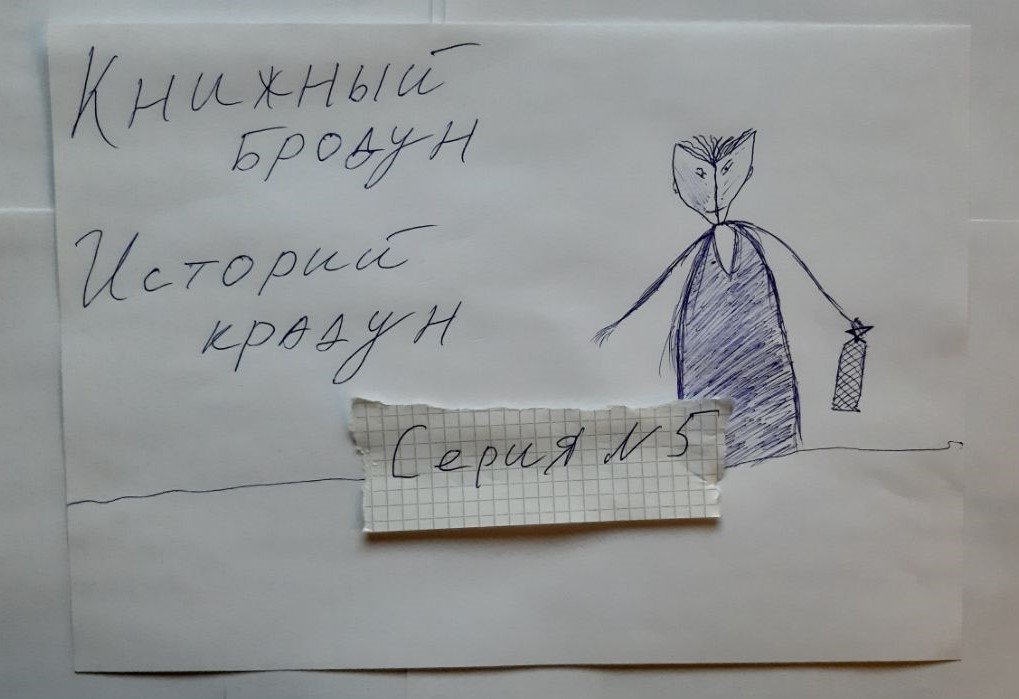 Книжный
бродун
Историй
крадун
Серия N 5